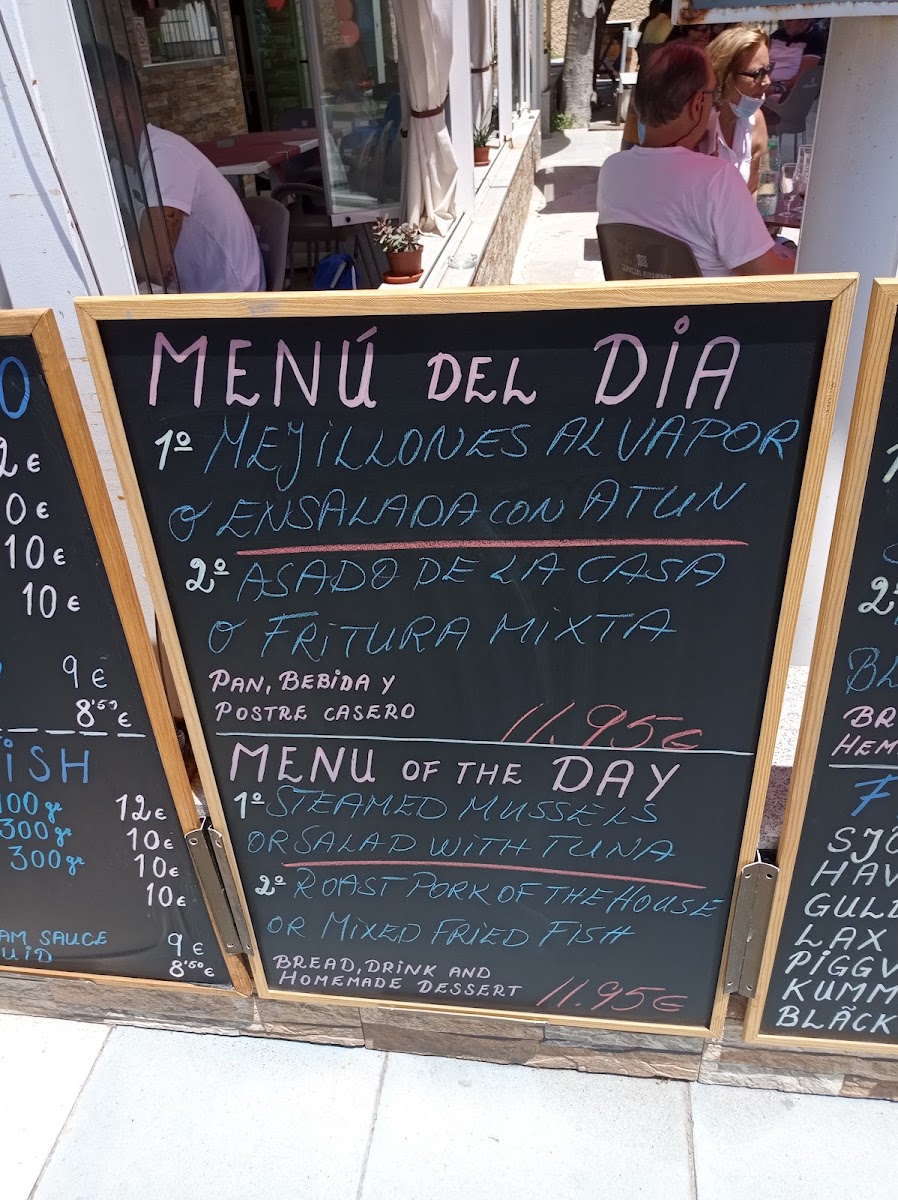 O
2€
0€
10€
10€
9€
8'50€
ISH
100gr 12€
300gr 10€
300gr 10€
10€
AM SAUCE 9€
UID 8'50€
MENÚ DEL DIA
1º MEJILLONES AL VAPOR
O ENSALADA CON ATUN
2º ASADO DE LA CASA
O FRITURA MIXTA
PAN, BEBIDA Y
POSTRE CASERO
11.95€
MENU OF THE DAY
1º STEAMED MUSSELS
OR SALAD WITH TUNA
2º ROAST PORK OF THE HOUSE
OR MIXED FRIED FISH
BREAD, DRINK AND
HOMEMADE DESSERT 11.95€
1
2º
BL
BR
HEM
F
SJÖ
HAV
GULD
LAX
PIGGV
KUMM
BLÃCK